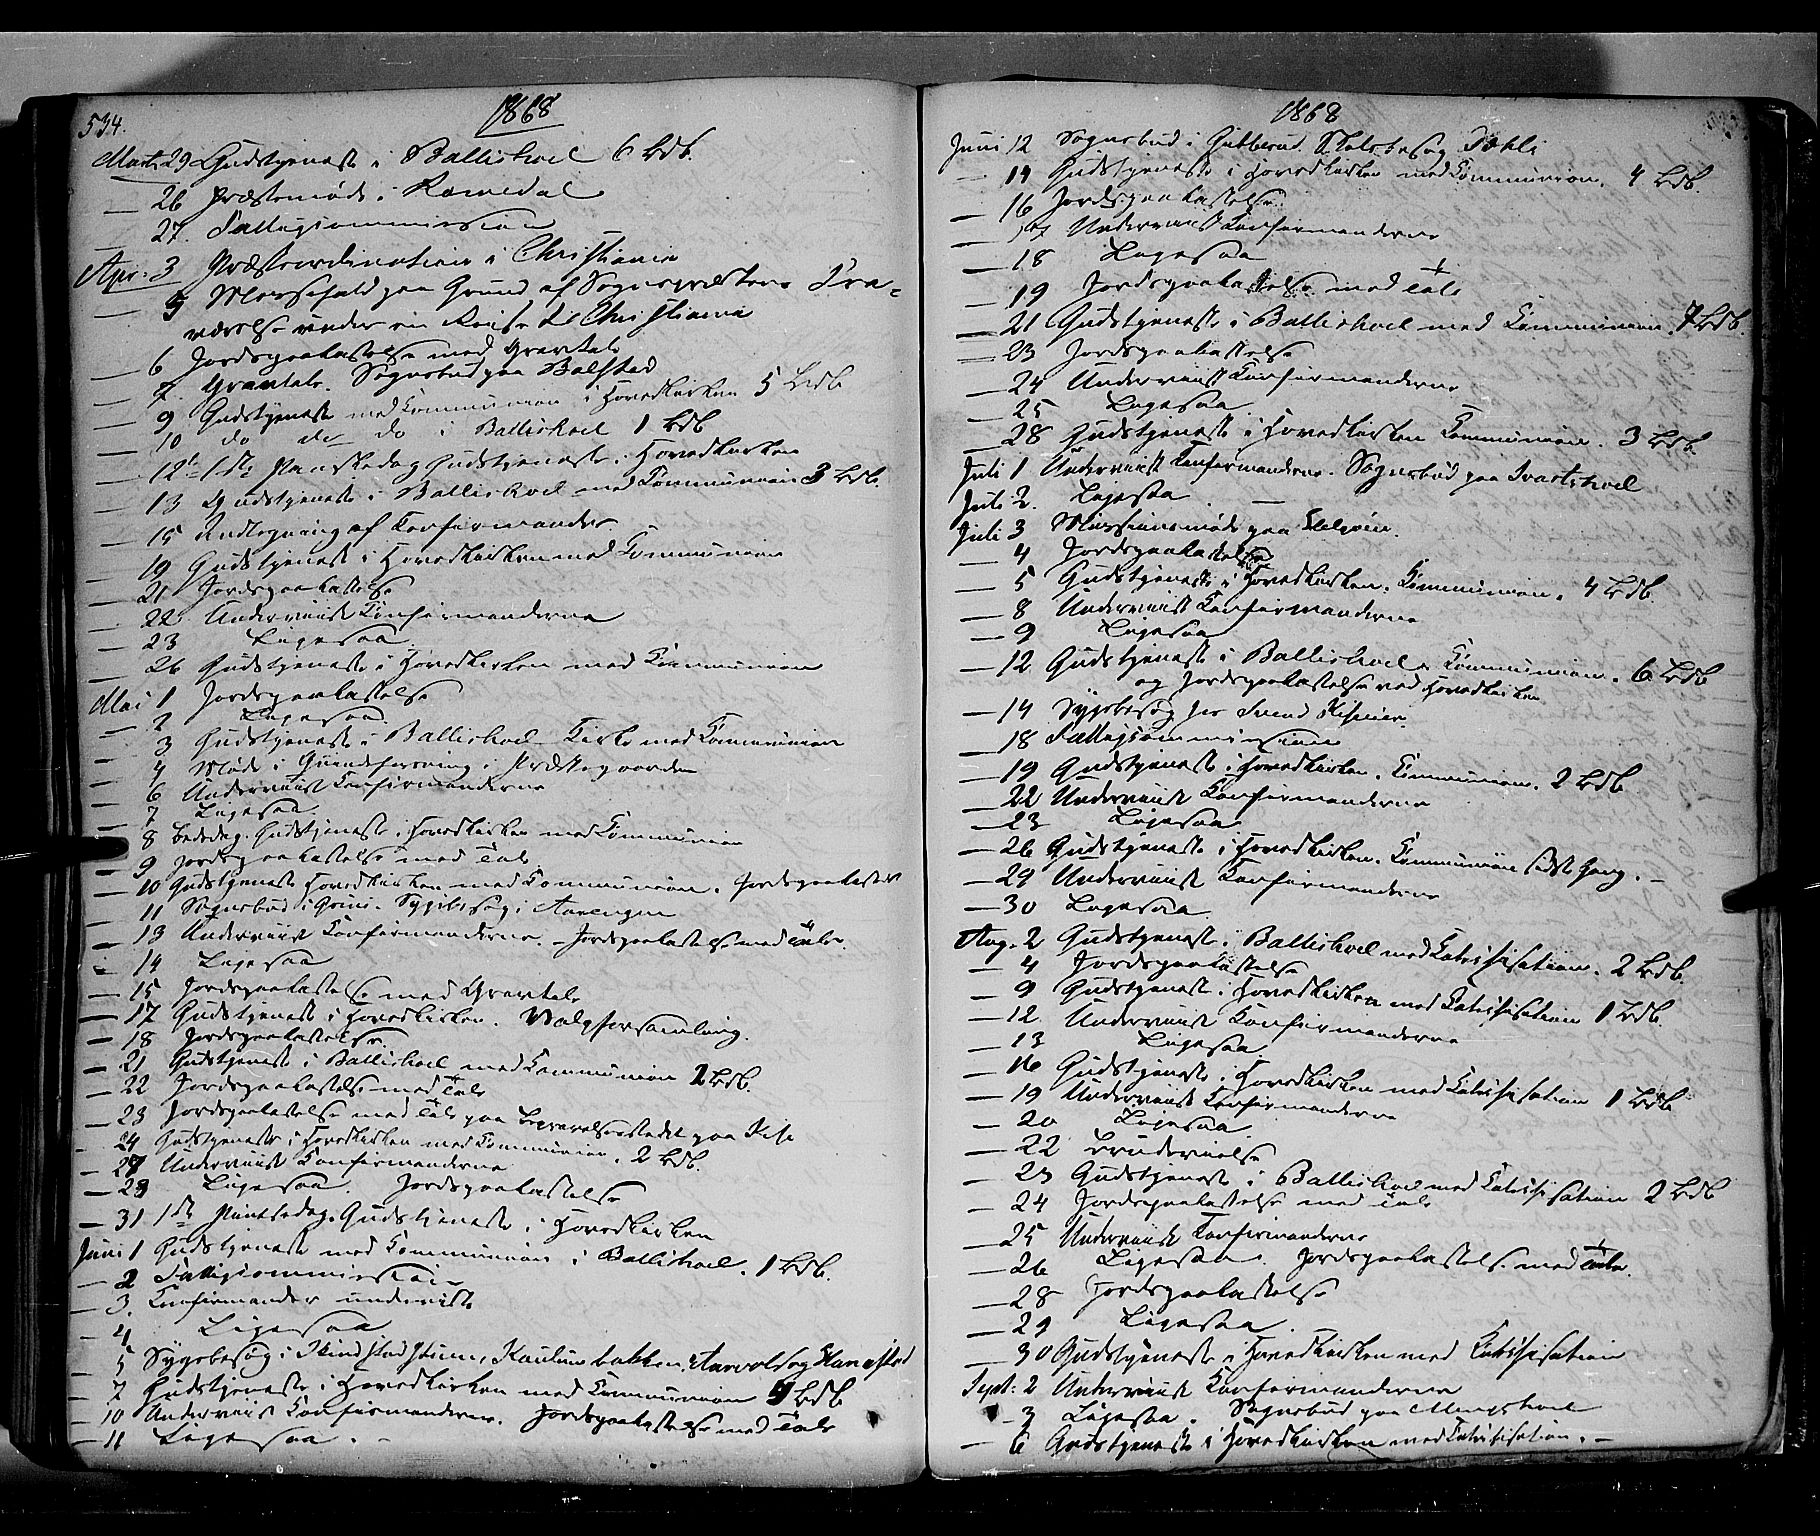 534.
1868
Marts 29 Gudstjeneste i Ballishoel 6 Bdb.
— 26 Præstemøde i Romedal
— 27. Valgcommission
Apr: 3 Præsteordination i Christiania
— 5 Messefald paa Grund af Sognepræstens Fra-
værelse under en Reise til Christiania
— 6 Jordspaakastelse med Gravtale
— 7. Gravtale. Sognebud paa Bolstad
— 9 Gudstjeneste med Communion i Hovedkirken 5 Bdb
— 10 do do do i Ballishoel 1 Bdb
— 12te 1ste Paaskedag Gudstjeneste i Hovedkirken
— 13 Gudstjeneste i Ballishoel med Communion 3 Bdb.
— 15 Indtegning af Confirmander
— 19 Gudstjeneste i Hovedkirken med Communion
— 21 Jordspaakastelse
— 22. Underviist Confirmanderne
— 23 Ligesaa
— 26 Gudstjeneste i Hovedkirken med Communion
Mai 1 Jordspaakastelse
— 2 Ligesaa.
— 3 Gudstjeneste i Ballishoel Kirke med Communion
— 4 Møde i i Præstegaarden
— 6 Underviist Confirmanderne
— 7 Ligesaa
— 8 Bededag. Gudstjeneste i Hovedkirken med Communion
— 9 Jordspaakastelse med Tale
— 10 Gudstjeneste Hovedkirken med Communion. Jordspaakastelse
— 11 Sognebud i Grini. Sygebesøg i Aarengen
— 13 Underviist Confirmanderne. Jordspaakastelse med Tale.
— 14 Ligesaa
— 15 Jordspaakastelse med Gravtale
— 17 Gudstjeneste i Hovedkirken. Valgforsamling.
— 18 Jordspaakastelse.
— 21 Gudstjeneste i Ballishoel med Communion 2 Bdb.
— 22 Jordspaakastelse med Tale
— 23 Jordspaakastelse med Tale paa Begravelsesstedet paa Kise
— 24 Gudstjeneste i Hovedkirken med Communion. 2 Bdb.
— 27 Underviist Confirmanderne
— 28 Ligesaa. Jordspaakastelse
— 31 1ste Pintsedag. Gudstjeneste i Hovedkirken
Juni 1 Gudstjeneste med Communion i Ballishoel. 1 Bdb.
— 2 Valgcommission
— 3. Confirmander underviste
— 4 Ligesaa
— 5 Sygebesøg i
— 7 Gudstjeneste i Hovedkirken med Communion 9 Bdb
— 10 Underviist Confirmanderne. Jordspaakastelse med Tale
— 11 Ligesaa. —
1868
Juni 12 Sognebud i Gubberud.
— 14 Gudstjeneste i Hovedkirken med Communion. 4 Bdb.
— 16 Jordspaakastelse.
— 17 Underviist Confirmanderne
— 18 Ligesaa
— 19 Jordspaakastelse med Tale
— 21 Gudstjeneste i Ballishoel med Communion. 7 Bdb.
— 23 Jordspaakastelse
— 24 Underviist Confirmanderne
— 25 Ligesaa.
— 28 Gudstjeneste i Hovedkirken Communion. 3 Bdb.
Juli 1 Underviist Confirmanderne. Sognebud paa Svartshoel
Juli 2. Ligesaa. —
Juli 3 Missionsmøde paa
— 4 Jordspaakastelse
— 5 Gudstjeneste i Hovedkirken. Communion. 4 Bdb.
— 8 Underviist Confirmanderne
— 9 Ligesaa
— 12 Gudstjeneste i Ballishoel. Communion. 6 Bdb
og Jordspaakastelse ved Hovedkirken
— 14 Sygebesøg hos Svend
— 18 Valgcommission
— 19 Gudstjeneste i Hovedkirken. Communion. 2 Bdb
— 22 Underviist Confirmanderne
— 23 Ligesaa
— 26 Gudstjeneste i Hovedkirken. Communion sidste Gang. —
— 29 Underviist Confirmanderne
— 30 Ligesaa.
Aug. 2 Gudstjeneste i Ballishoel med Catechisation. 2 Bdb.
— 4 Jordspaakastelse
— 9 Gudstjeneste i Hovedkirken med Catechisation 1 Bdb.
— 12. Underviist Confirmanderne
— 13 Ligesaa.
— 16 Gudstjeneste i Hovedkirken med Catechisation 1 Bdb.
— 19 Underviist Confirmanderne
— 20 Ligesaa.
— 22 Brudevielse
— 23 Gudstjeneste i Ballishoel med Catechisation 2 Bdb
— 24 Jordspaakastelse med Tale
— 25 Underviist Confirmanderne
— 26 Ligesaa. Jordspaakastelse med Tale.
— 28 Jordspaakastelse
— 29 Ligesaa.
— 30 Gudstjeneste i Hovedkirken med Catechisation
Sept: 2 Underviist Confirmanderne
— 3 Ligesaa. Sognebud paa
— 6 Gudstjeneste i Hovedkirken med Catechisation. —